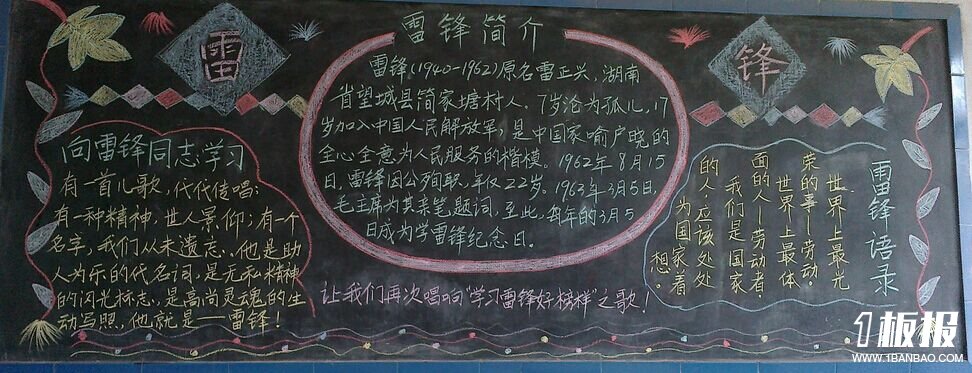 雷
锋
雷锋简介
雷锋(1940-1962)原名雷正兴,湖南
省望城县简家塘村人,7岁沦为孤儿,17
岁加入中国人民解放军,是中国家喻户晓的
全心全意为人民服务的楷模。1962年8月15
日,雷锋因公殉职,年仅22岁。1963年3月5日,
毛主席为其亲笔题词,至此,每年的3月5
日成为学雷锋纪念日。
向雷锋同志学习
有一首儿歌,代代传唱;
有一种精神,世人景仰;有一个
名字,我们从未遗忘。他是助
人为乐的代名词,是无私精神
的闪光标志,是高尚灵魂的生
动写照,他就是——雷锋!
让我们再次唱响“学习雷锋好榜样”之歌!
雷锋语录
世界上最光
荣的事—劳动。
世界上最体
面的人—劳动者。
我们是国家
的人,应该处处
为国家着
想。
1板报
WWW.1BANBAO.COM